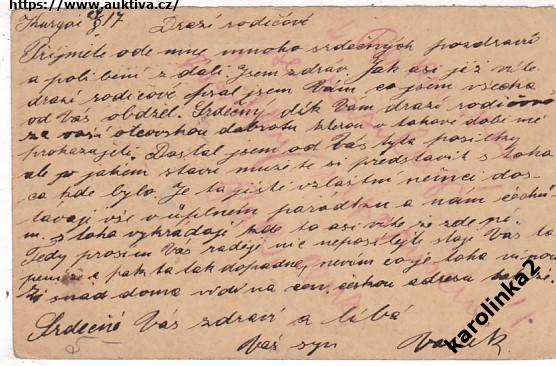 https://www.auktiva.cz/
Thurgói 17 Drazí rodičové
Přijměte ode mne mnoho srdečných pozdravů
a políbení z dáli Jsem zdráv. Jak asi již víte
drazí rodičové psal jsem Vám co jsem všecko
od Vás obdžel. Srdečný dík Vám drazí rodičové
za vaší otcovskou dobrotu kterou v takové době mě
prokazujete. Dostal jsem od vás tyto posilky
ale po jakém stavu muzete si představit z toho
co kde bylo. Je to jisté vzláštní němci dos-
távají vše v úplném pořádku a nám čechů
m z toho vykrádají kde to asi víte že zde né.
Tedy prosím Vás raději nic neposílejte stojí Vás to
peníze a pak to tak dopadne, nevím co je toho
snad doma vidí na českou adresu
Srdečně Vás zdraví a líbá
Váš syn
karolinka2